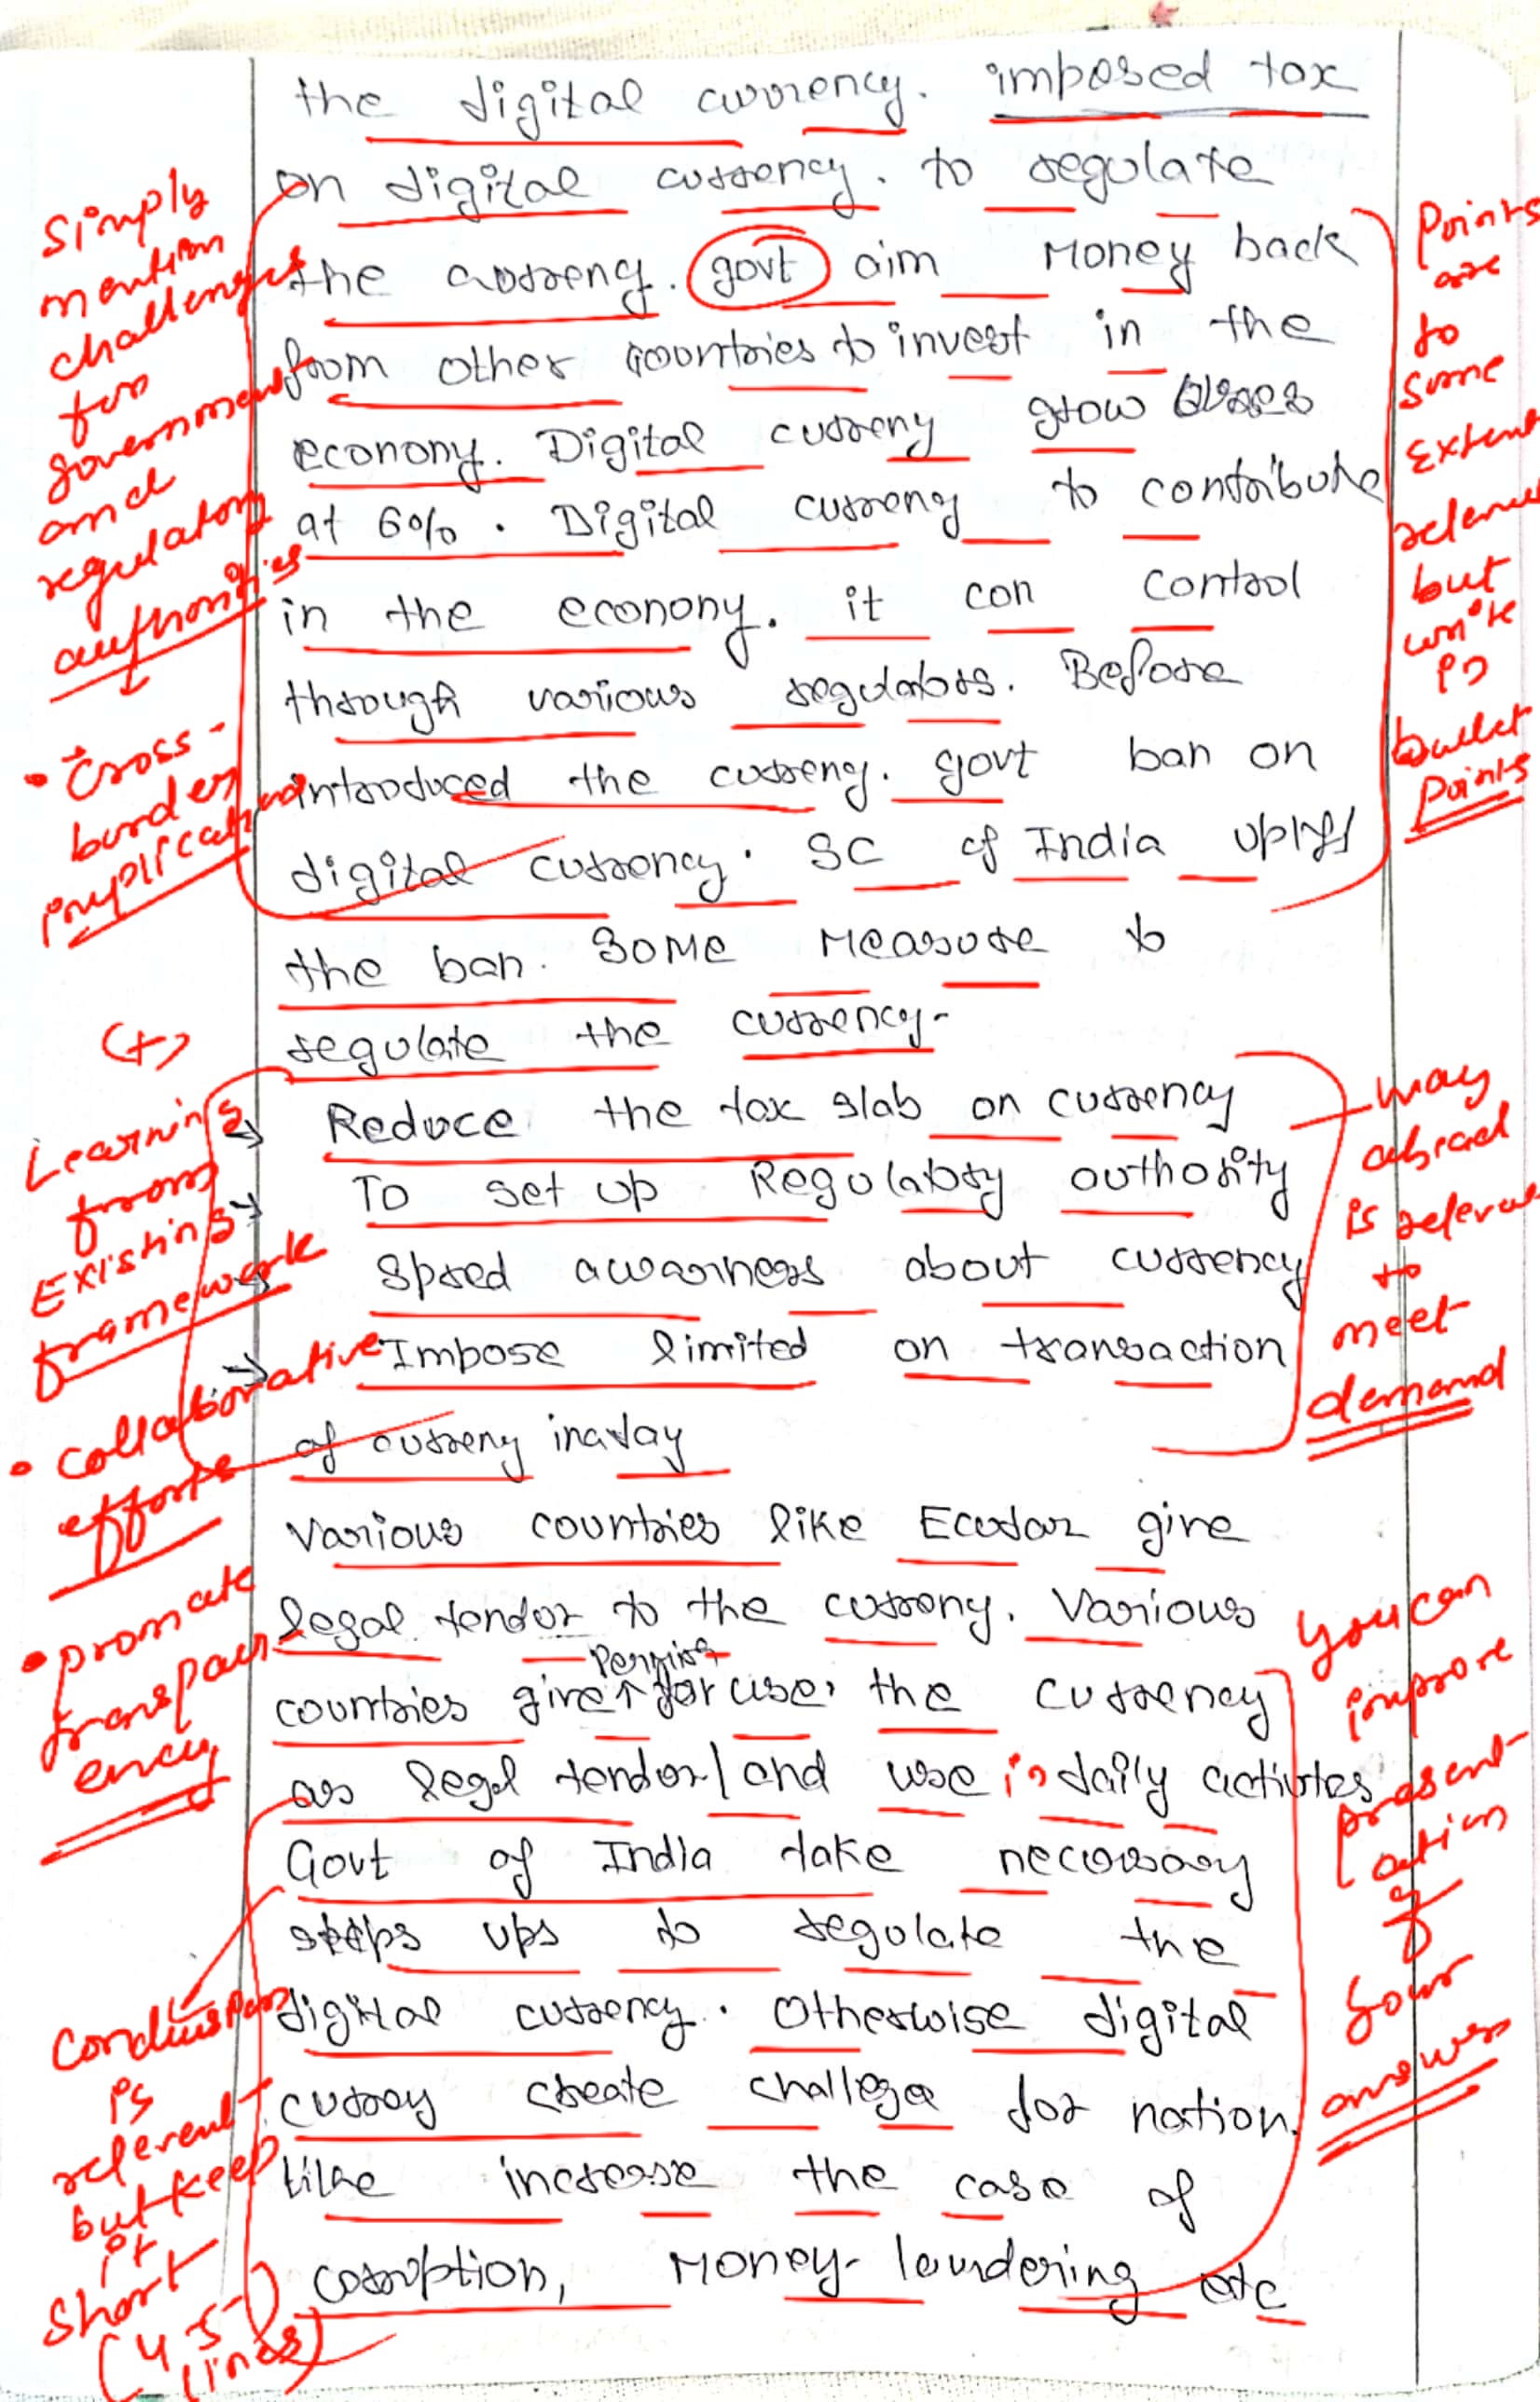 the digital currency. imposed tax
on digital currency. to regulate
the curreny. govt aim Money back
from other countries to invest in the
econony. Digital curreny grow
at 6%. Digital curreny to contribute
in the econony. it can control
through various regulators. Before
introduced the curreny. govt ban on
digital currency. SC of India uplift
the ban. Some Measure to
regulate the currency-
→ Reduce the tax slab on currency
→ To set up Regulatory authority
→ Spred awarness about currency
→ Impose limited on transaction
of curreny inaday
Various countries like Ecudar give
legal tender to the curreny. Various
countries give permist for use the currency
as legal tender/and use in daily activites
Govt of India take necessary
steps ups to regulate the
digital currency. Otherwise digital
currey create challege for nation.
like increase the case of
corruption, Money-laundering etc
Simply
mention
challenges
for
government
and
regulatory
authorities
• Cross-
border
implication
(+)
Learning
from
Existing
framework
• collaborative
efforts
• promote
transpar
ency
Conclusion
is
relevent
but keep
it
short
(4-5
lines)
Points
are
to
some
Extent
relevant
but
write
in
bullet
points
way
ahead
is relevant
to
meet
demand
You can
improve
present-
ation
of
your
answer